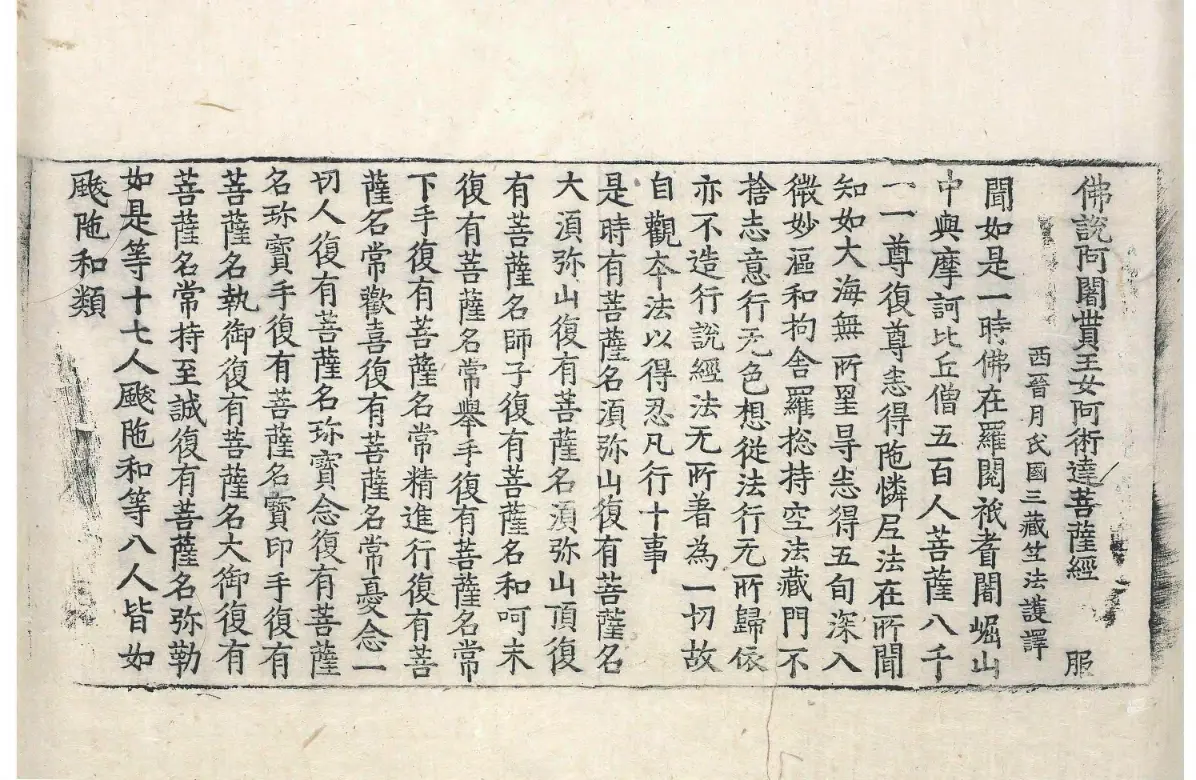 佛說阿闍貰王女阿術達菩薩經 服
西晉月氏國三藏竺法護譯
聞如是一時佛在羅閱祇耆闍崛山
中與摩訶比丘僧五百人菩薩八千
一一尊復尊悉得陁憐尼法在所聞
知如大海無所罣㝵悉得五旬深入
微妙漚和拘舍羅捴持空法藏門不
捨志意行无色想從法行无所歸依
亦不造行說經法无所著為一切故
自觀夲法以得忍凡行十事
是時有菩薩名湏弥山復有菩薩名
大湏弥山復有菩薩名湏弥山頂復
有菩薩名師子復有菩薩名和呵末
復有菩薩名常舉手復有菩薩名常
下手復有菩薩名常精進行復有菩
薩名常歡喜復有菩薩名常憂念一
切人復有菩薩名珎寶念復有菩薩
名珎寶手復有菩薩名寶印手復有
菩薩名執御復有菩薩名大御復有
菩薩名常持至誠復有菩薩名弥勒
如是等十七人颰陁和等八人皆如
颰陁和類